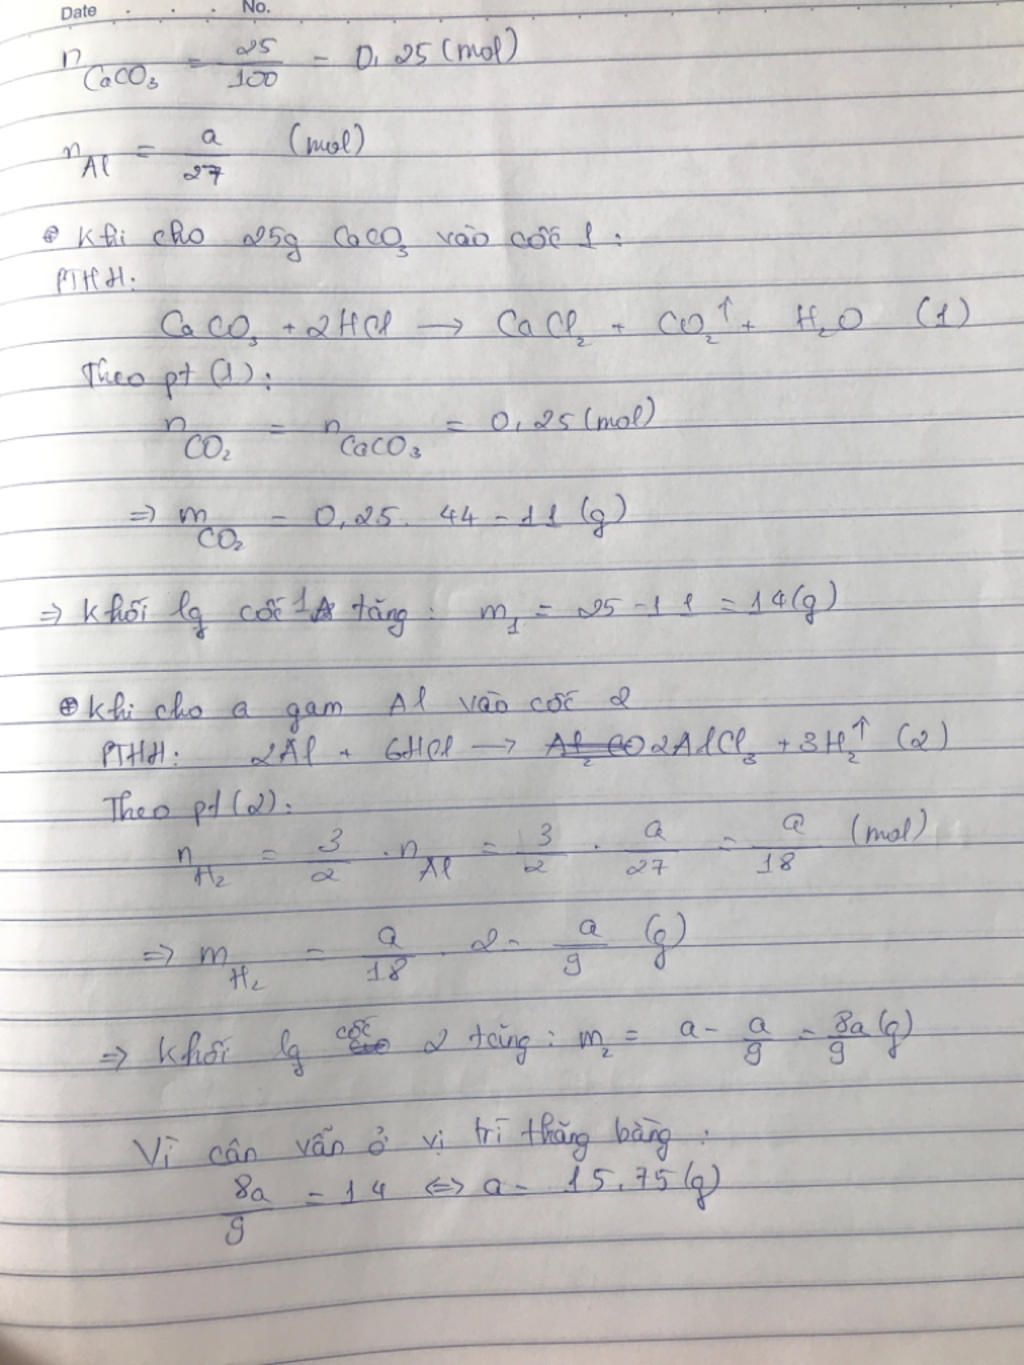 Date No.
n CaCO₃ = 25/100 = 0,25 (mol)
n Al = a/27 (mol)
⊕ Khi cho 25g CaCO₃ vào cốc 1 :
PTHH:
CaCO₃ + 2HCl → CaCl₂ + CO₂↑ + H₂O (1)
Theo pt (1) :
n CO₂ = n CaCO₃ = 0,25 (mol)
=> m CO₂ = 0,25. 44 = 11 (g)
=> Khối lg cốc 1 tăng : m₁ = 25 - 11 = 14 (g)
⊕ Khi cho a gam Al vào cốc 2
PTHH: 2Al + 6HCl → 2AlCl₃ + 3H₂↑ (2)
Theo pt (2) :
n H₂ = 3/2 . n Al = 3/2 . a/27 = a/18 (mol)
=> m H₂ = a/18 . 2 = a/9 (g)
=> Khối lg cốc 2 tăng : m₂ = a - a/9 = 8a/9 (g)
Vì cân vẫn ở vị trí thăng bằng :
8a/9 = 14 <=> a = 15,75 (g)